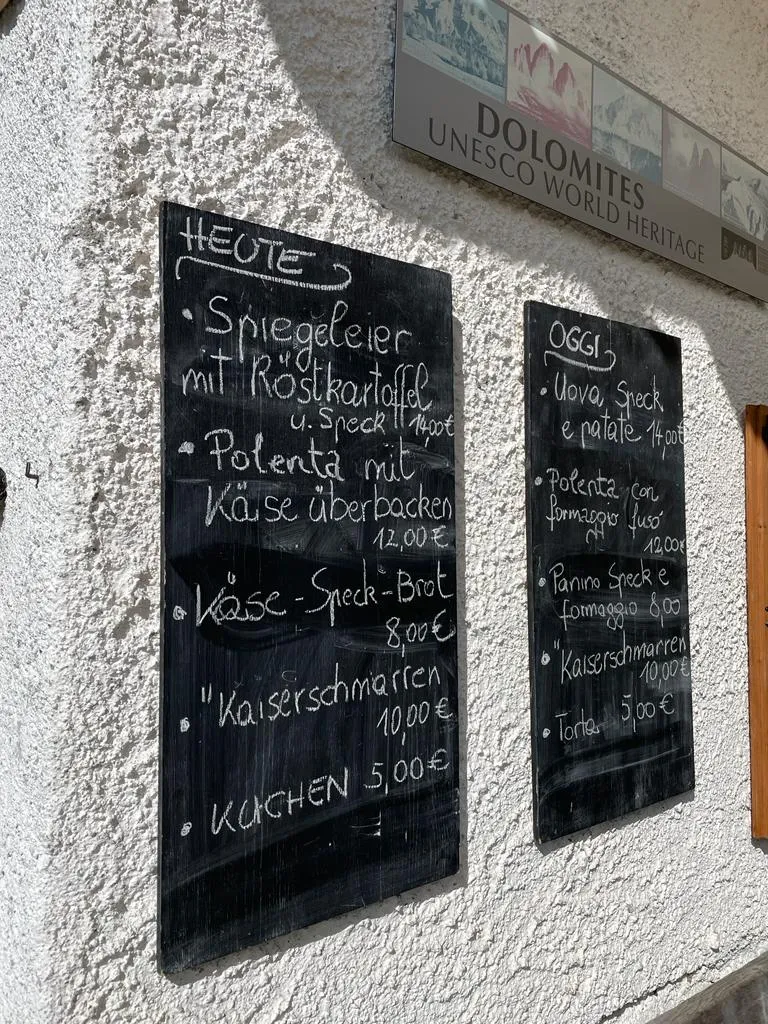 DOLOMITES
UNESCO WORLD HERITAGE
HEUTE
• Spiegeleier
mit Röstkartoffel
u. Speck 14,00€
• Polenta mit
Käse überbacken
12,00€
• Käse-Speck-Brot
8,00€
• "Kaiserschmarren
10,00€
• KUCHEN 5,00€
OGGI
• Uova Speck
e patate 14,00€
• Polenta con
formaggio fuso
12,00€
• Panino Speck e
formaggio 8,00
• "Kaiserschmarren
10,00€
• Torta 5,00€